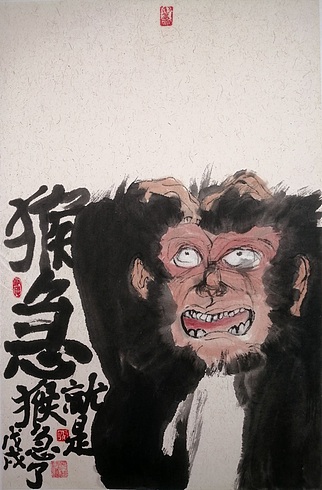 猴急
就是
猴急了
戊戌